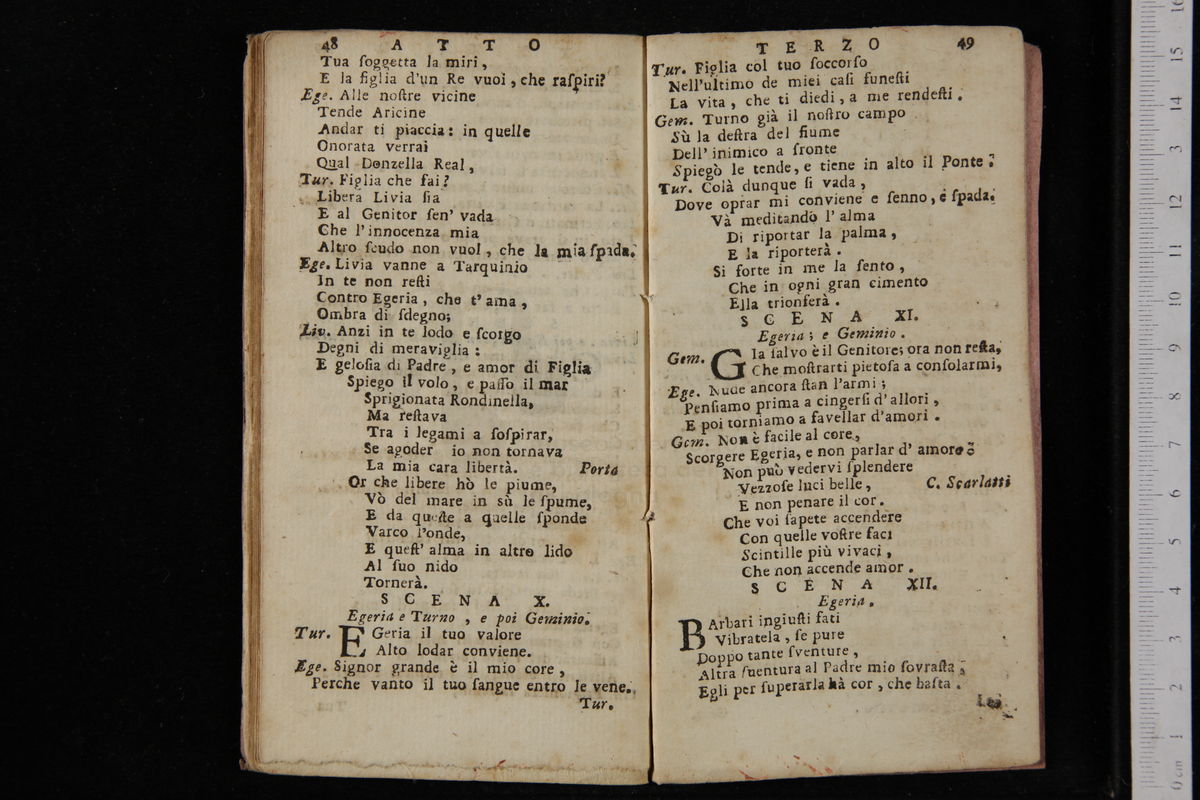 48 A T T O
Tua ſoggetta la miri,
E la figlia d'un Re vuoi, che raſpiri?
Ege. Alle noſtre vicine
Tende Aricine
Andar ti piaccia: in quelle
Onorata verrai
Qual Donzella Real,
Tur. Figlia che fai?
Libera Livia ſia
E al Genitor ſen' vada
Che l'innocenza mia
Altro ſcudo non vuol, che la mia ſpada.
Ege. Livia vanne a Tarquinio
In te non reſti
Contro Egeria, che t' ama,
Ombra di ſdegno;
Liv. Anzi in te lodo e ſcorgo
Degni di meraviglia:
E geloſia di Padre, e amor di Figlia
Spiego il volo, e paſſo il mar
Sprigionata Rondinella,
Ma reſtava
Tra i legami a ſoſpirar,
Se agoder io non tornava
La mia cara libertà. Porta
Or che libere hò le piume,
Vò del mare in sù le ſpume,
E da queſte a quelle ſponde
Varco l'onde,
E queſt' alma in altro lido
Al ſuo nido
Tornerà.
S C E N A X.
Egeria e Turno, e poi Geminio.
Tur. EGeria il tuo valore
Alto lodar conviene.
Ege. Signor grande è il mio core,
Perche vanto il tuo ſangue entro le vene.
Tur.
T E R Z O 49
Tur. Figlia col tuo ſoccorſo
Nell'ultimo de miei caſi funeſti
La vita, che ti diedi, a me rendeſti.
Gem. Turno già il noſtro campo
Sù la deſtra del fiume
Dell' inimico a fronte
Spiegò le tende, e tiene in alto il Ponte.
Tur. Colà dunque ſi vada,
Dove oprar mi conviene e ſenno, e ſpada.
Và meditando l' alma
Di riportar la palma,
E la riporterà.
Si forte in me la ſento,
Che in ogni gran cimento
Ella trionferà.
S C E N A XI.
Egeria; e Geminio.
Gem. Gla ſalvo è il Genitore; ora non reſta,
Che moſtrarti pietoſa a conſolarmi,
Ege. Nude ancora ſtan l'armi;
Penſiamo prima a cingerſi d'allori,
E poi torniamo a favellar d'amori.
Gem. Non è facile al core,
Scorgere Egeria, e non parlar d' amore:
Non può vedervi ſplendere
Vezzoſe luci belle, C. Scarlatti
E non penare il cor.
Che voi ſapete accendere
Con quelle voſtre faci
Scintille più vivaci,
Che non accende amor.
S C E N A XII.
Egeria.
BArbari ingiuſti fati
Vibratela, ſe pure
Doppo tante ſventure,
Altra ſuentura al Padre mio ſovraſta;
Egli per ſuperarla hà cor, che baſta.